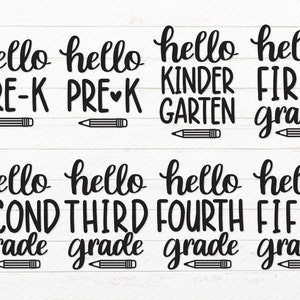 hello hello hello hello
RE-K PRE♥K KINDER FIR
GARTEN gra
hello hello hello hello
COND THIRD FOURTH FIF
rade grade grade gra